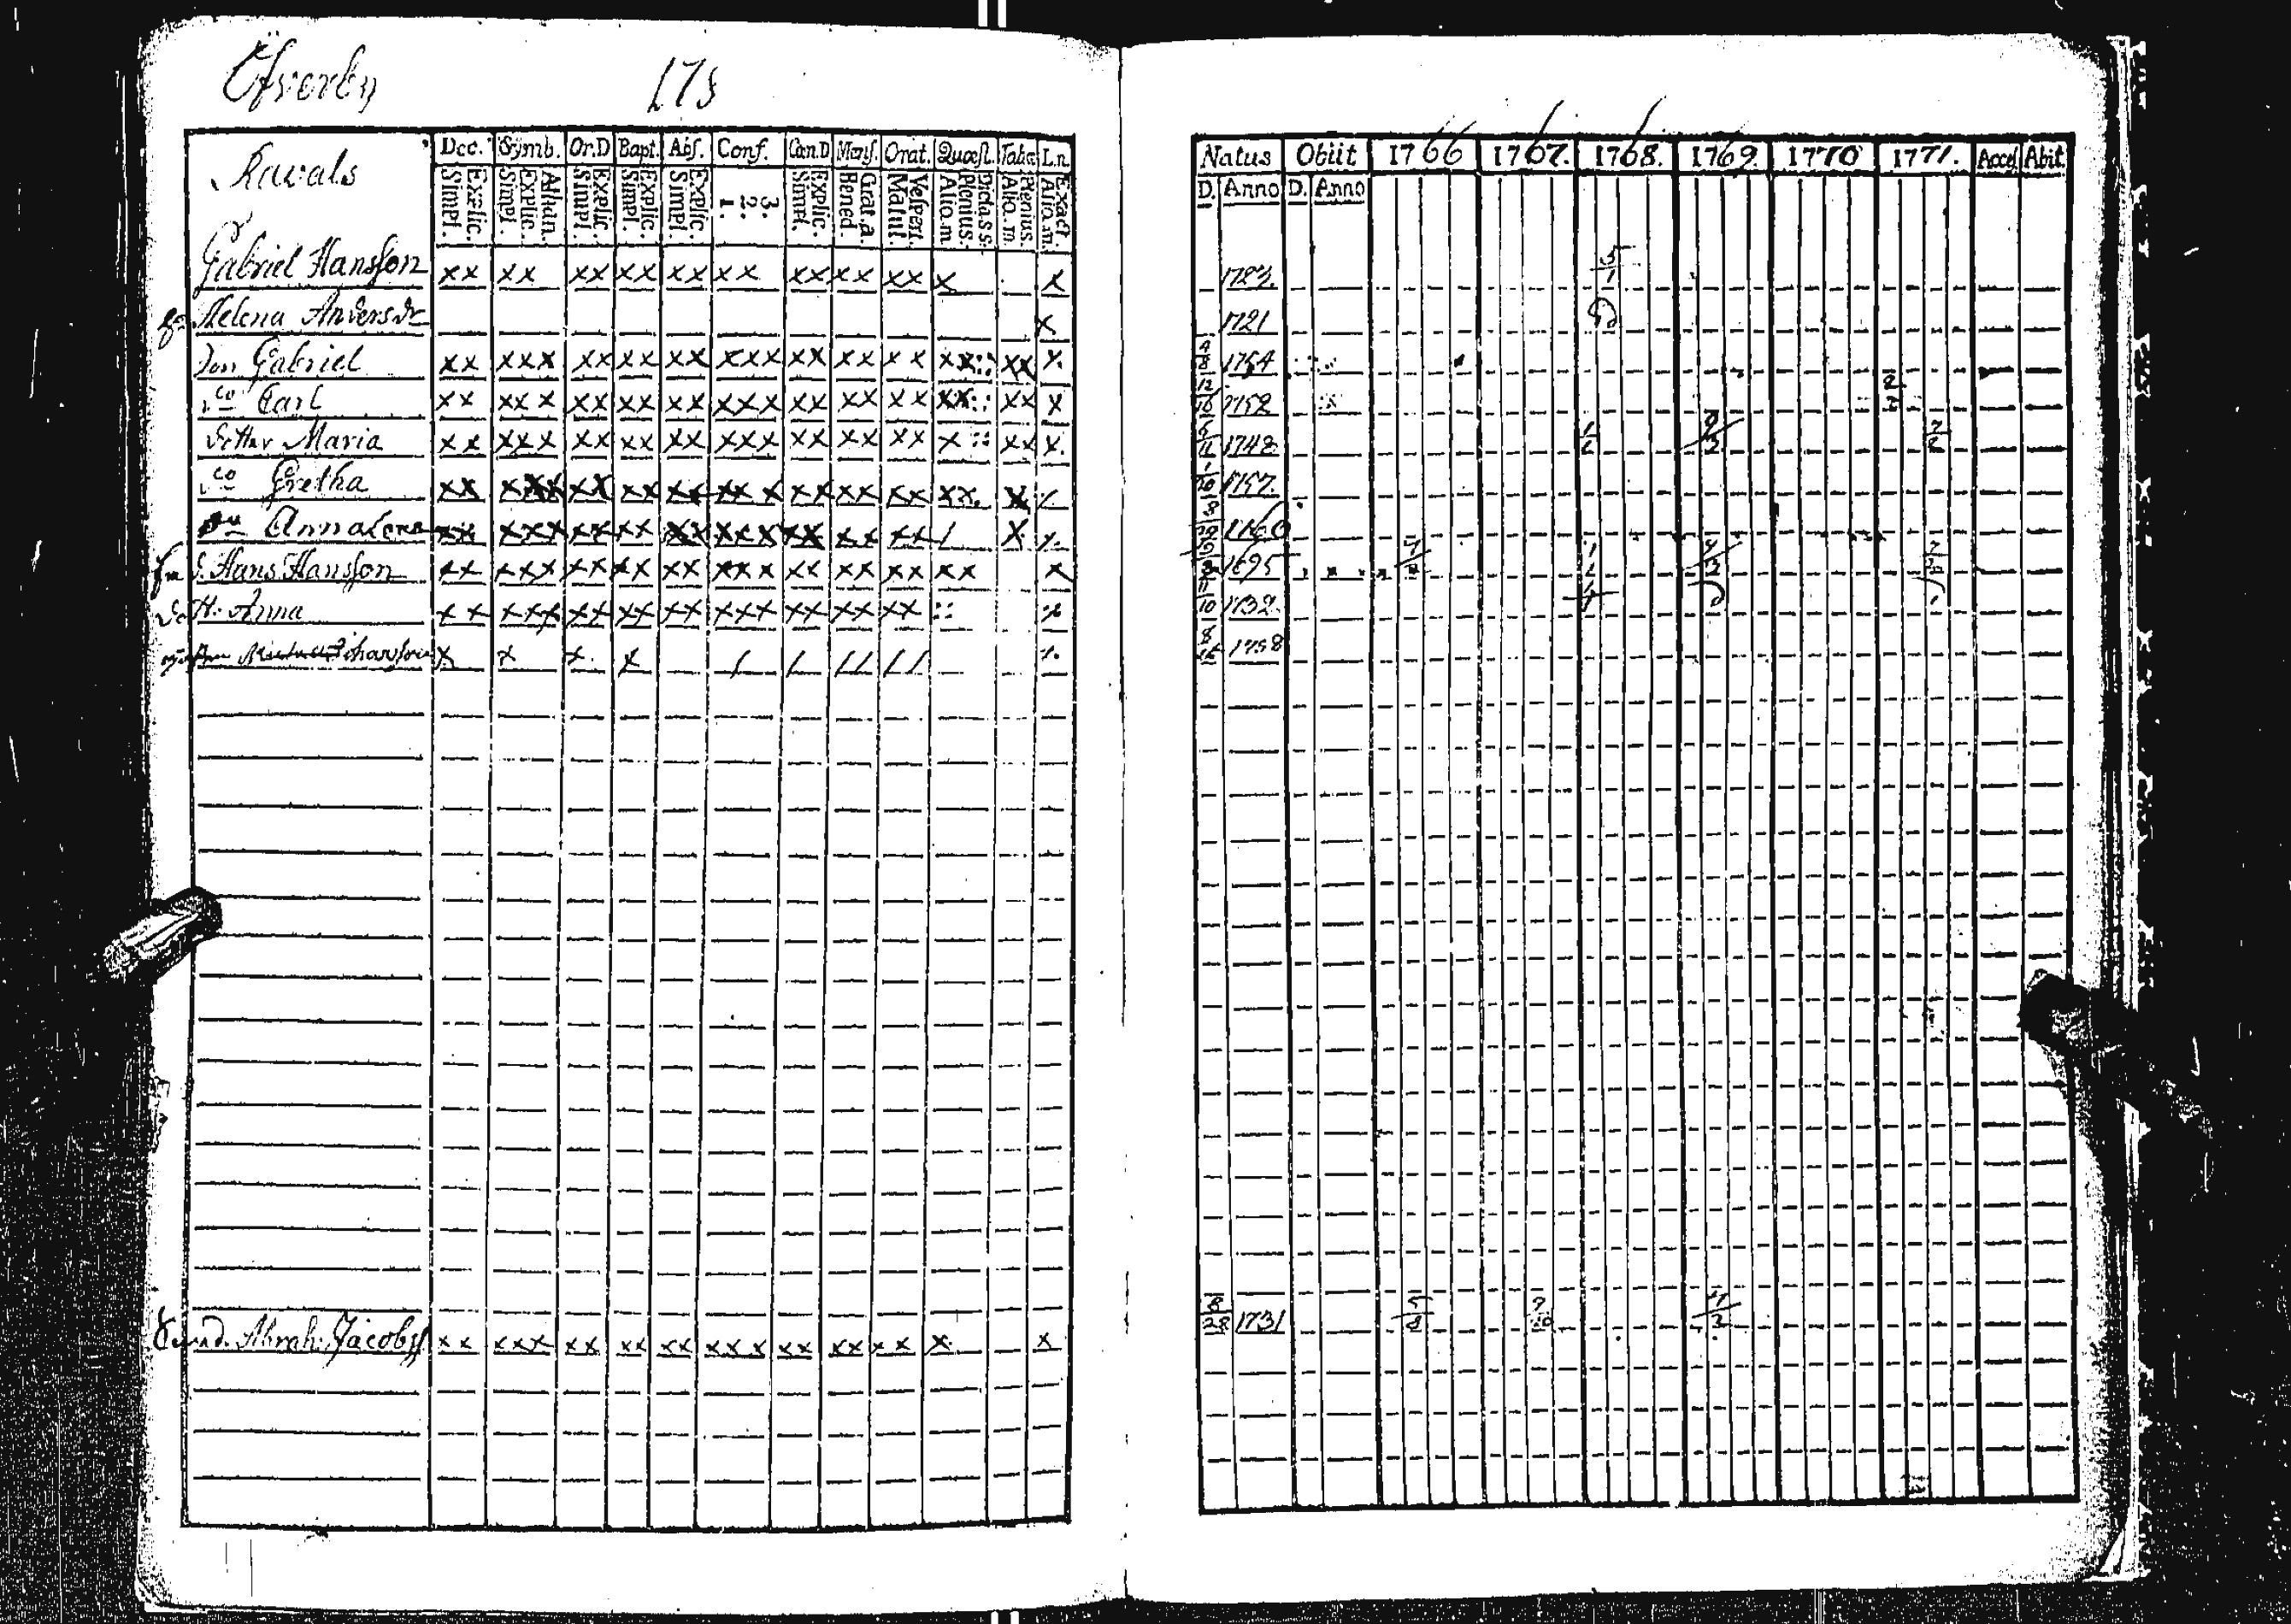 Öfverby 173
Kavals
Dec. Symb. Or.D Bapt. Abs. Conf. Cœn.D Mens. Orat. Quæst. Tabæ L.n.
Explic. Simpl. Athan. Explic. Simpl. Explic. Simpl. Explic. Simpl. Explic. Simpl. 3. 2. 1. Explic. Simpl. Grat.a. Bened. Vespert. Matut. Dicta.s.s. Plenius. Alio.m. Plenius. Alio.m. Exact. Alio.m.
Natus Obiit 1766 1767. 1768. 1769. 1770 1771. Acced. Abit.
D. Anno D. Anno
Gabriel Hansson xx xx xx xx xx xx xx xx xx x x 1723. 5/1
Helena Andersdr x 1721
Son Gabriel xx xxx xx xx xx xxx xx xx xx xx:: xx x. 1754
Carl xx xxx xx xx xx xxx xx xx xx xx:: xx x 12/10 1752
Dotter Maria xx xxx xx xx xx xxx xx xx xx x :: xx x. 1748
Gretha xx xxx xx xx xx xxx xx xx xx xx. x 1/10 1757.
Annalena xx xxx xx xx xx xxx xx xx xx / x 1760
Hans Hansson xx xxx xx xx xx xxx xx xx xx xx x 1695
Anna xx xxx xx xx xx xxx xx xx xx :: 1732.
x x x. x / / // // 1758
Abrah: Jacobss xx xxx xx xx xx xxx xx xx xx x. x 8/28 1731 5/8 7/10